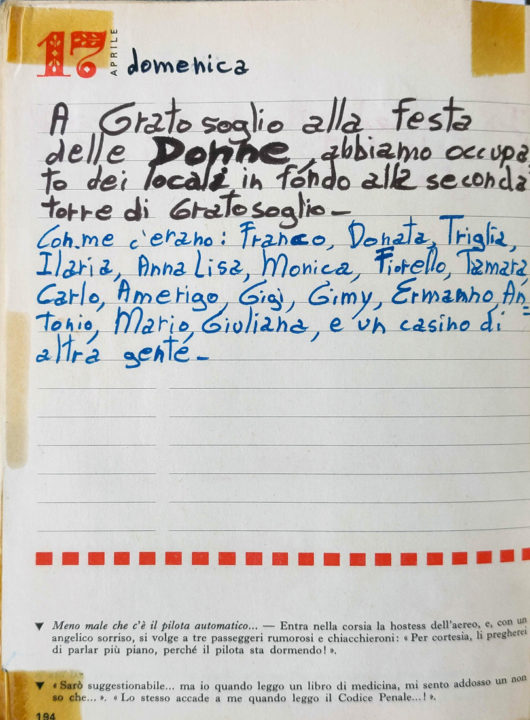 17 APRILE domenica
A Grato soglio alla festa
delle Donne, abbiamo occupa
to dei locali in fondo alla seconda
torre di Gratosoglio_
Con.me c'erano: Franco, Donata, Triglia,
Ilaria, Anna Lisa, Monica, Fiorello, Tamara,
Carlo, Amerigo, Gigi, Gimy, Ermanno, An=
tonio, Mario, Giuliana, e un casino di
altra gente_
▼ Meno male che c'è il pilota automatico... — Entra nella corsia la hostess dell'aereo, e, con un
angelico sorriso, si volge a tre passeggeri rumorosi e chiacchieroni: « Per cortesia, li pregherei
di parlar più piano, perché il pilota sta dormendo! ».
▼ « Sarò suggestionabile... ma io quando leggo un libro di medicina, mi sento addosso un non
so che... ». « Lo stesso accade a me quando leggo il Codice Penale...! ».
194